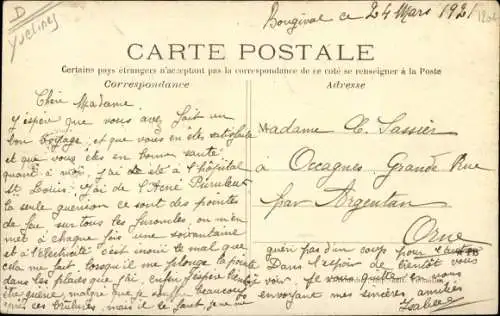 D
Yvelines
Bougival ce 24 Mars 1921
CARTE POSTALE
Certains pays étrangers n'acceptant pas la correspondance de ce coté se renseigner à la Poste
Correspondance
Adresse
Chère Madame
J'éspère que vous avez fait un
bon voyage, et que vous en ête satisfaite
et que vous êtes en bonne santé
quant à moi, j'ai été à l'hôpital
St Louis: j'ai de l'Acné Purulent
la seule guérison ce sont des pointes
de feu sur tous les furoncles, on m'en
met à chaque fois une soixantaine
et à l'électricité. c'est inouï le mal que
cela me fait lorsqu'il me plonge la pointe
dans les plaies que j'ai, enfin j'éspère bientôt
être guérie, malgré que je souffre beaucoup
avec ces brûlures, mais il le faut, je ne me
Madame C. Sassier
à Occagnes Grande Rue
par Argentan
Orne
guéri pas d'un coup pour
Dans l'espoir de bientôt vous
voir. Je vous quitte en vous
envoyant mes sincères amitiés
Isabelle